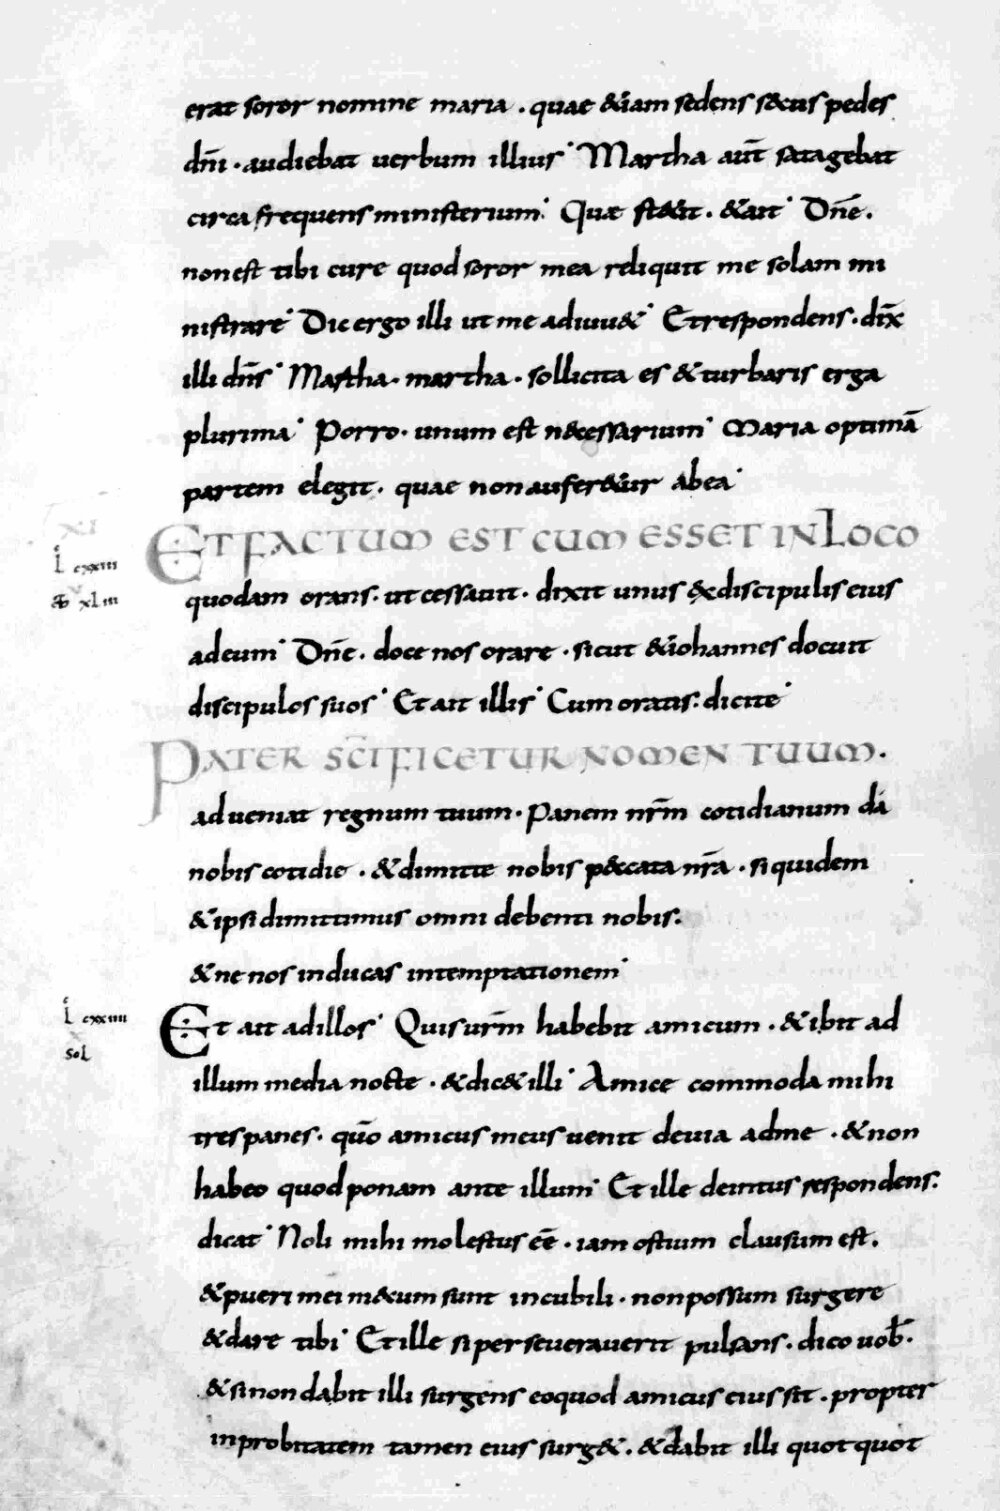 erat soror nomine maria . quae &iam sedens s&cus pedes
dn̄i . audiebat uerbum illius Martha aūt satagebat
circa frequens ministerium Quae st&it . & ait Dn̄e .
non est tibi cure quod soror mea reliquit me solam mi
nistrare Dic ergo illi ut me adiuu& Et respondens . dix̄
illi dn̄s Martha . martha . sollicita es & turbaris erga
plurima Porro . unum est n&cessarium Maria optimā
partem elegit . quae non aufer&ur abea
XI
ET FACTUM EST CUM ESSET IN LOCO
L cxxiii
quodam orans . ut cessauit . dixit unus ex discipulis eius
xliii
ad eum Dn̄e . doce nos orare . sicut & iohannes docuit
discipulos suos Et ait illis Cum oratis : dicite
PATER SC̄IFICETUR NOMEN TUUM .
adueniat regnum tuum . Panem nr̄m cotidianum da
nobis cotidie . & dimitte nobis p&ccata nr̄a . siquidem
& ipsi dimittimus omni debenti nobis :
& ne nos inducas in temptationem
L cxxiiii
Et ait ad illos Quis ur̄m habebit amicum . & ibit ad
sol
illum media nocte . & dic& illi Amice commoda mihi
tres panes . quō amicus meus uenit de uia ad me . & non
habeo quod ponam ante illum Et ille deintus respondens :
dicat Noli mihi molestus eē . iam ostium clausum est .
& pueri mei m&cum sunt in cubili . non possum surgere
& dare tibi Et ille si perseuerauerit pulsans . dico uob̄ .
& si non dabit illi surgens eo quod amicus eius sit . propter
inprobitatem tamen eius surg& . & dabit illi quotquot